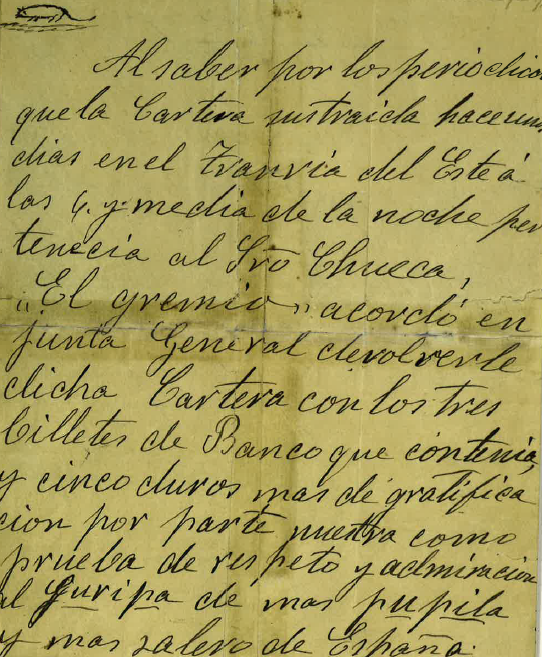 Al saber por los periodicos
que la Cartera sustraida hace unos
dias en el Tranvia del Este á
las 9. y media de la noche per
tenecia al Sro Chueca,
"El gremio" acordó en
junta General devolverle
dicha Cartera con los tres
billetes de Banco que contenia,
y cinco duros mas de gratifica
cion por parte nuestra como
prueba de respeto y admiracion
al Guripa de mas pupila
y mas salero de España.